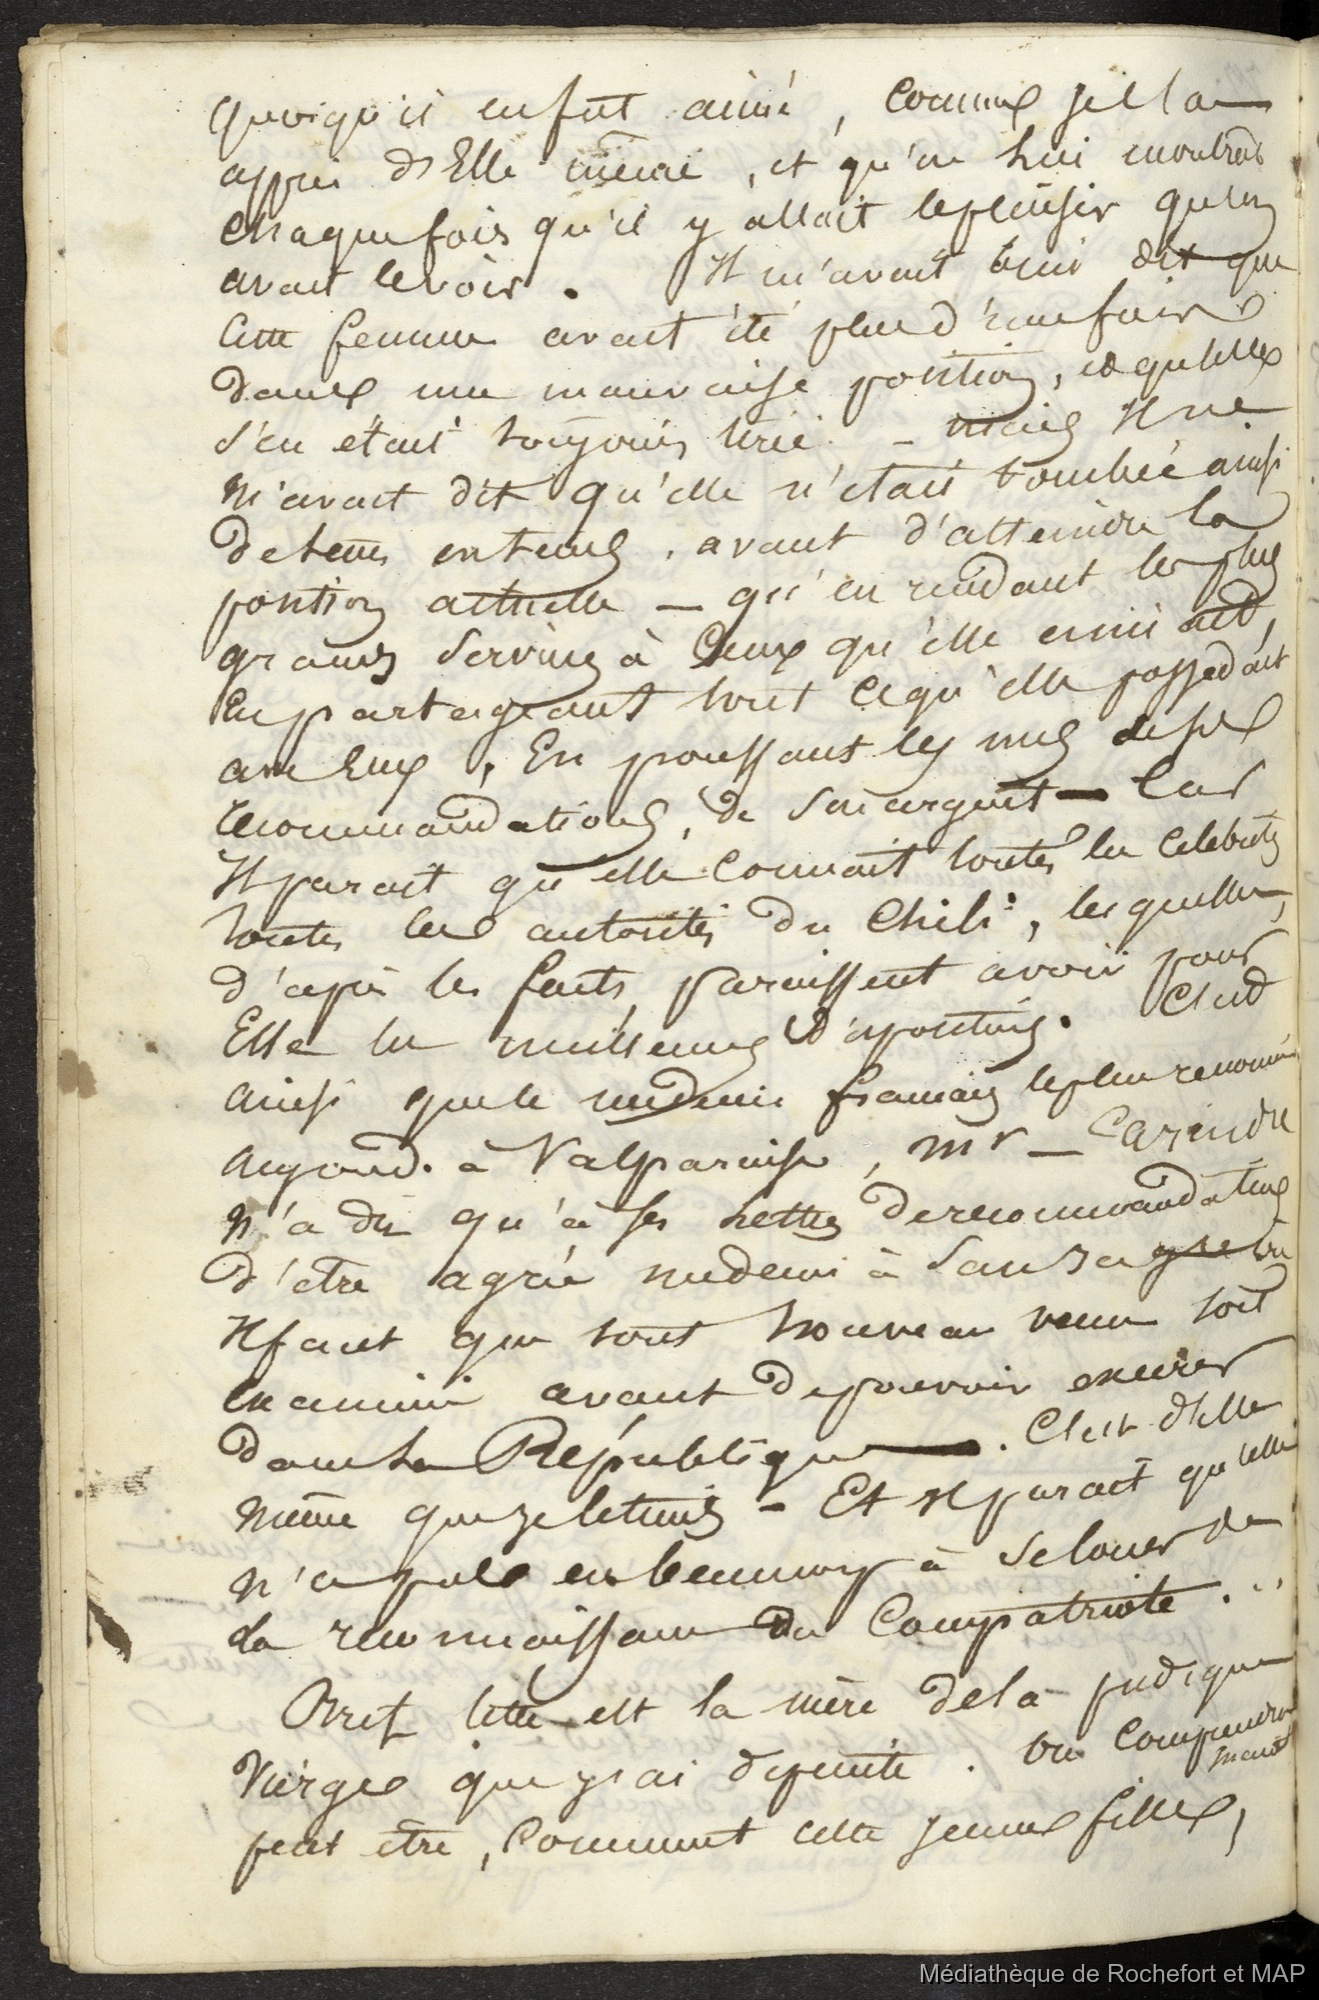 quoiqu'il en fut aimé, comme je l'ai
appris d'Elle même, et qu'on lui montrait
chaque fois qu'il y allait le plaisir qu'on
avait le voir. Il m'avait dit que
cette femme avait été plus d'une fois
dans une mauvaise position, et qu'elle
s'en était toujours tirée. - mais Il ne
m'avait dit qu'elle n'était tombée ainsi
de tems en tems, avant d'atteindre la
position actuelle — qu'en rendant les plus
grands services à Ceux qu'elle aimait,
En partageant tout ce qu'elle possedait
avec Eux, En poussant les uns de ses
recommandations, de son argent — Car
Il parait qu'elle connait toutes les celebrités
toutes les autorités du Chili, lesquelles,
d'après les faits, paraissent avoir pour
Elle les meilleures dispositions. C'est
ainsi que le medecin français le plus renommé
aujourd. à Valparaiso, Mr —
n'a du qu'à ses lettres de recommandations
d'etre agréé medecin à Santiago
Il faut que tout nouveau venu soit
examiné avant de pouvoir exercer
dans la République. C'est d'elle
même que je le tiens - Et Il parait qu'elle
n'a pas eu beaucoup à se louer de
la reconnaissance du Compatriote...
Bref cette est la mère de la pudique
Vierge que j'ai dépeinte. On comprendra
maint
peut etre, Comment cette jeune fille,
Médiathèque de Rochefort et MAP